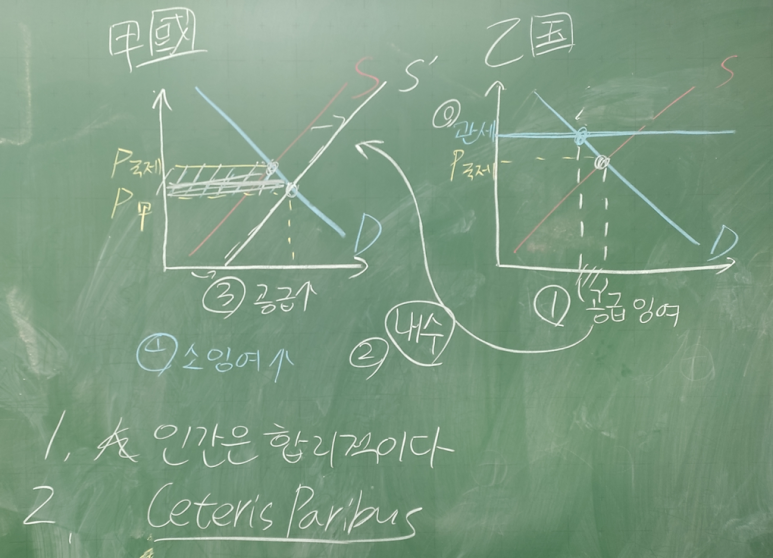 甲國
乙国
S
S'
S
⓪
관세
P국제
P국제
P甲
D
D
③ 공급↑
① 공급 잉여
② 내수
④ 소잉여↑
1. 人 인간은 합리적이다
2. Ceteris Paribus